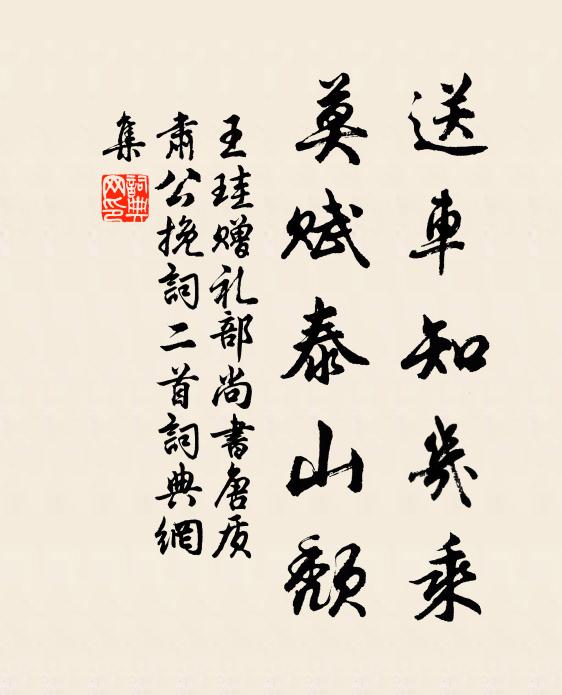 送車知幾乘
莫賦泰山頹
王珪贈礼部尚書唐质
肅公挽詞二首詞典網
集
詞典網印